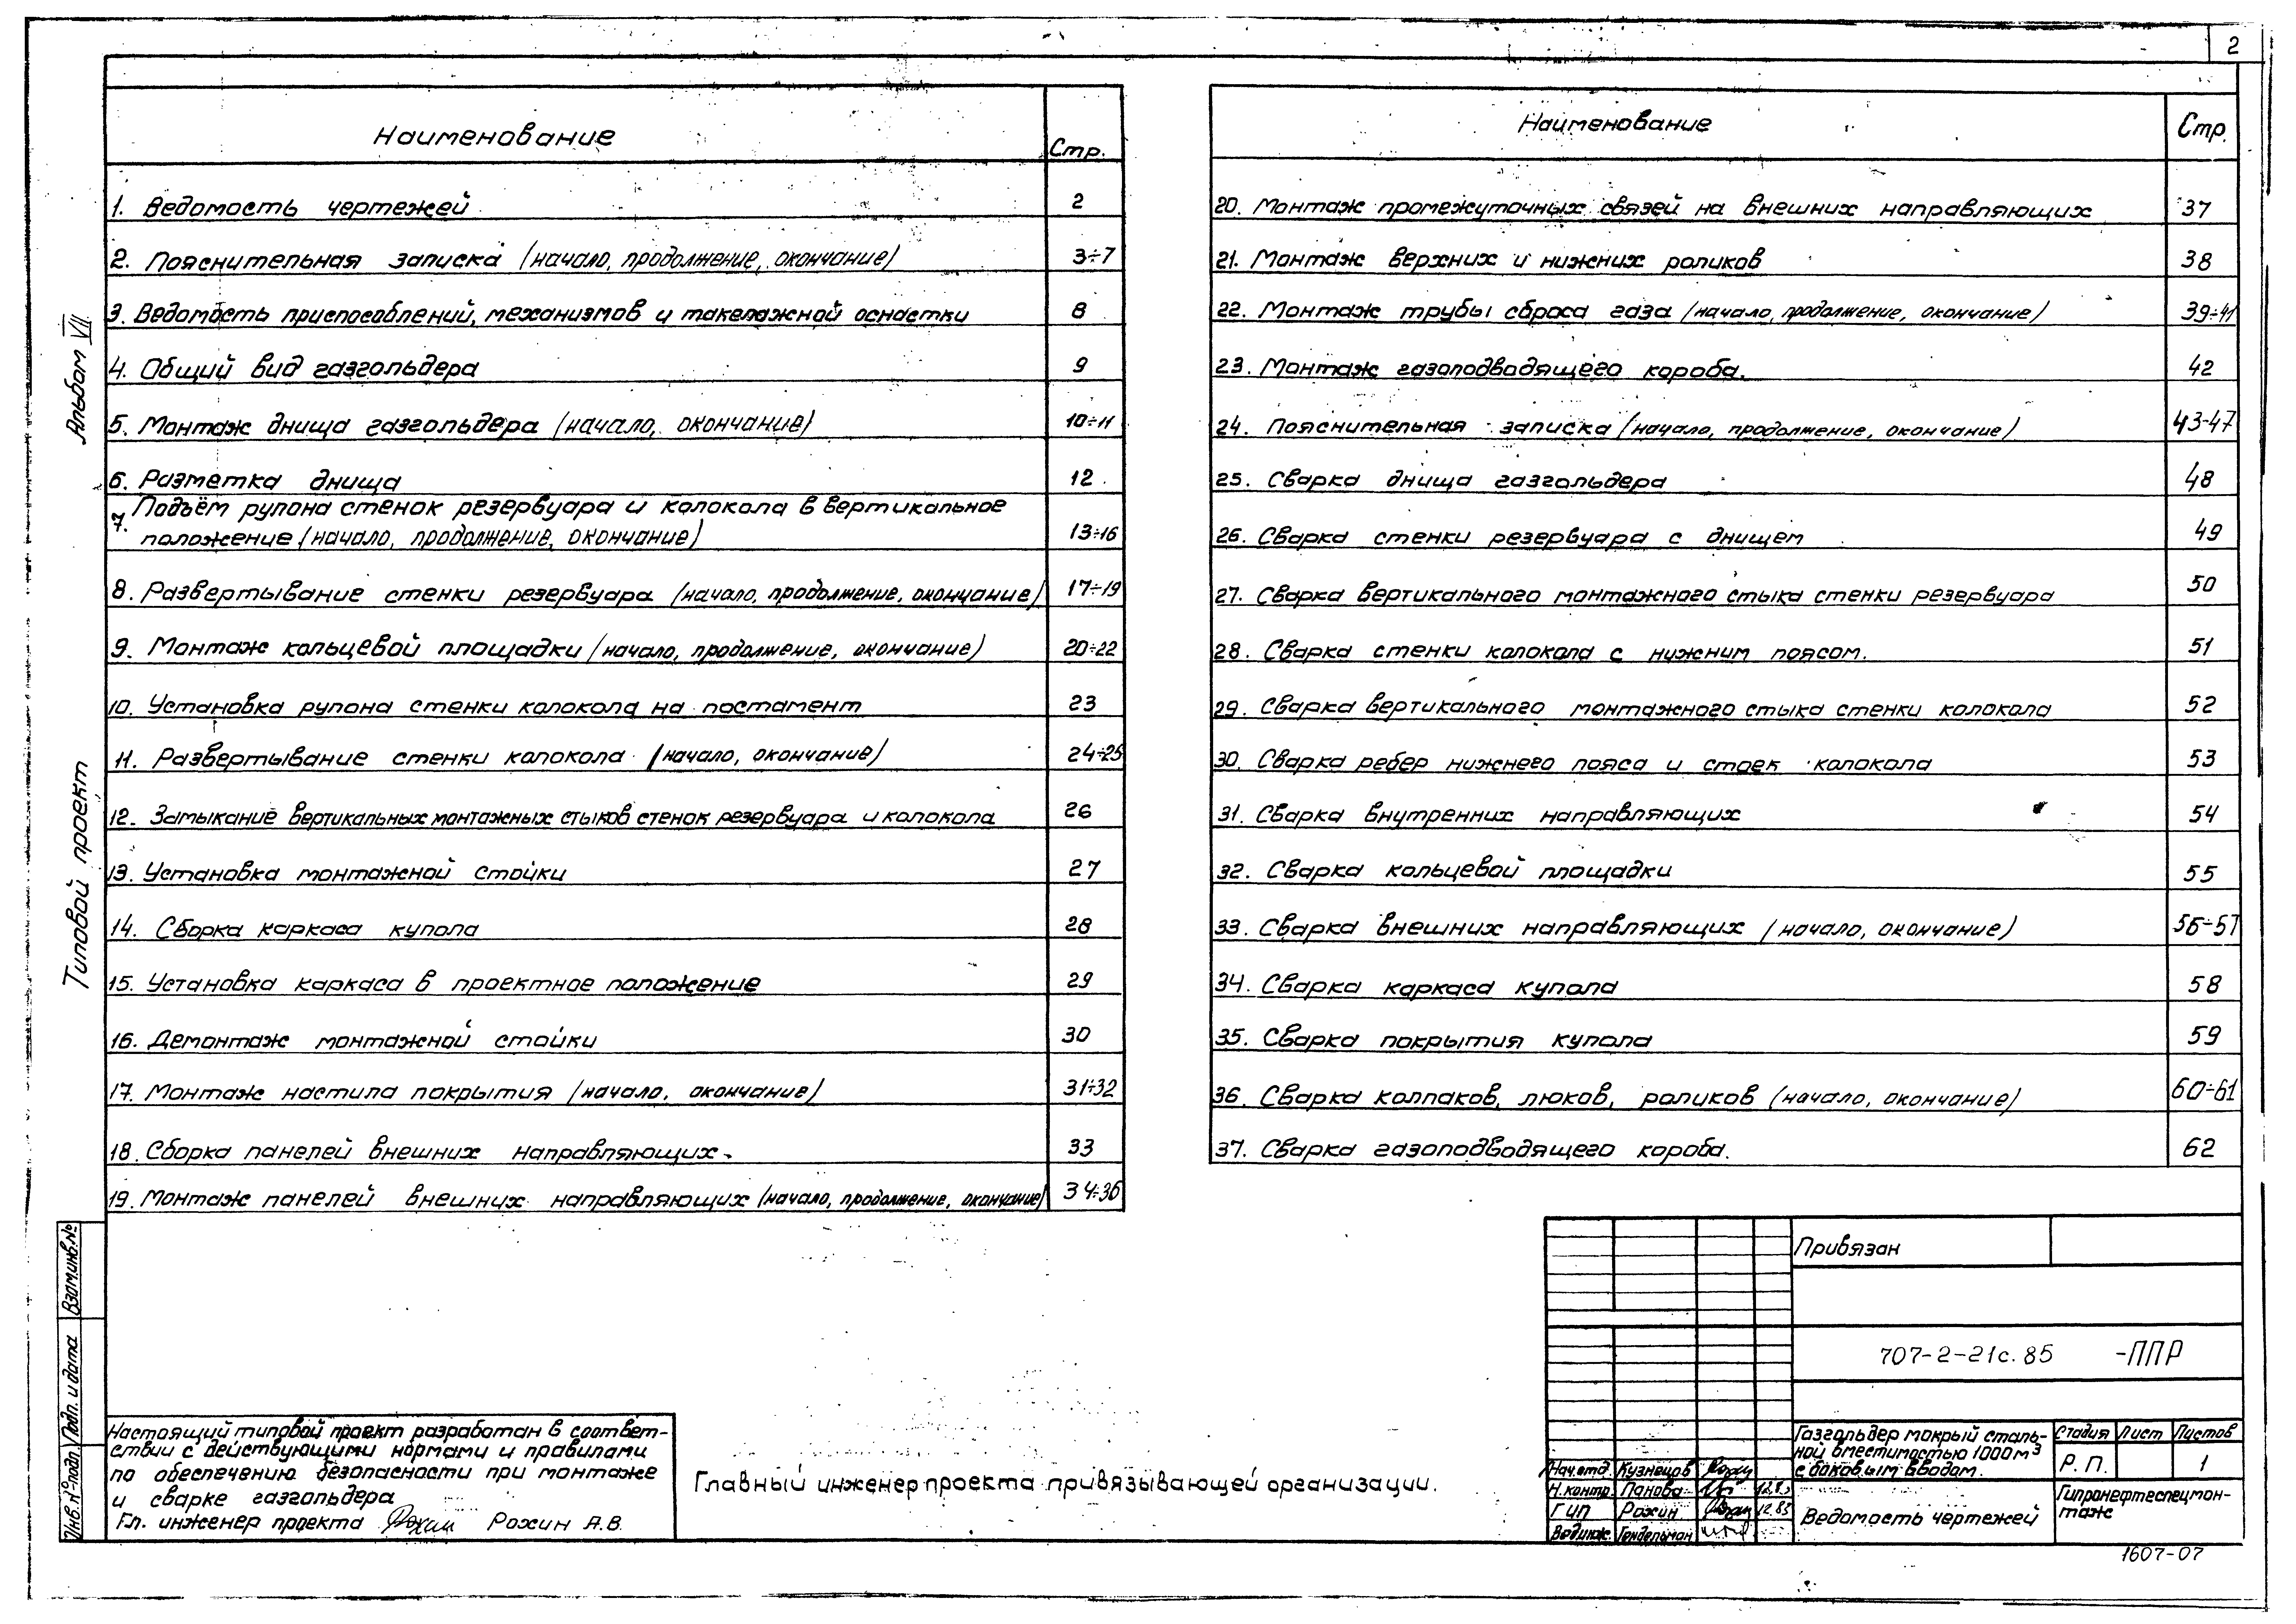 2
Альбом VII
Типовой проект
Наименование Стр.
1. Ведомость чертежей 2
2. Пояснительная записка (начало, продолжение, окончание) 3÷7
3. Ведомость приспособлений, механизмов и такелажной оснастки 8
4. Общий вид газгольдера 9
5. Монтаж днища газгольдера (начало, окончание) 10÷11
6. Разметка днища 12
7. Подъём рулона стенок резервуара и колокола в вертикальное
положение (начало, продолжение, окончание) 13÷16
8. Развертывание стенки резервуара (начало, продолжение, окончание) 17÷19
9. Монтаж кольцевой площадки (начало, продолжение, окончание) 20÷22
10. Установка рулона стенки колокола на постамент 23
11. Развертывание стенки колокола (начало, окончание) 24÷25
12. Замыкание вертикальных монтажных стыков стенок резервуара и колокола 26
13. Установка монтажной стойки 27
14. Сборка каркаса купола 28
15. Установка каркаса в проектное положение 29
16. Демонтаж монтажной стойки 30
17. Монтаж настила покрытия (начало, окончание) 31÷32
18. Сборка панелей внешних направляющих 33
19. Монтаж панелей внешних направляющих (начало, продолжение, окончание) 34÷36
Наименование Стр.
20. Монтаж промежуточных связей на внешних направляющих 37
21. Монтаж верхних и нижних роликов 38
22. Монтаж трубы сброса газа (начало, продолжение, окончание) 39÷41
23. Монтаж газоподводящего короба. 42
24. Пояснительная записка (начало, продолжение, окончание) 43-47
25. Сварка днища газгольдера 48
26. Сварка стенки резервуара с днищем 49
27. Сварка вертикального монтажного стыка стенки резервуара 50
28. Сварка стенки колокола с нижним поясом. 51
29. Сварка вертикального монтажного стыка стенки колокола 52
30. Сварка ребер нижнего пояса и стоек колокола 53
31. Сварка внутренних направляющих 54
32. Сварка кольцевой площадки 55
33. Сварка внешних направляющих (начало, окончание) 56÷57
34. Сварка каркаса купола 58
35. Сварка покрытия купола 59
36. Сварка колпаков, люков, роликов (начало, окончание) 60÷61
37. Сварка газоподводящего короба. 62
Инв. № подл. Подп. и дата Взам.инв.№
Настоящий типовой проект разработан в соответ-
ствии с действующими нормами и правилами
по обеспечению безопасности при монтаже
и сварке газгольдера
Гл. инженер проекта Рохин А.В.
Главный инженер проекта привязывающей организации.
Привязан
707-2-21с.85 -ППР
Газгольдер мокрый сталь-
ной вместимостью 1000м³
с боковым вводом.
Стадия Лист Листов
Р.П. 1
Нач.отд. Кузнецов
Н.контр. Панова
ГИП Рохин 12.85
Вед.инж. Гендельман
Ведомость чертежей
Гипронефтеспецмон-
таж
1607-07